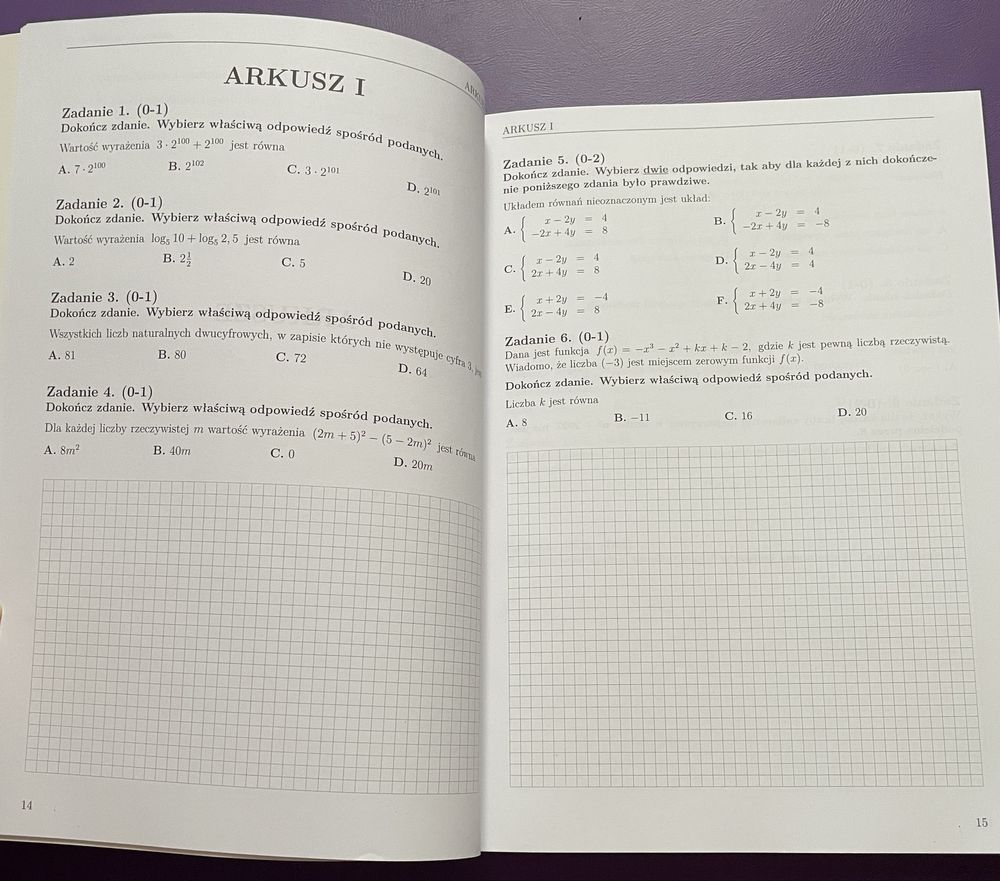 ARKUSZ I
Zadanie 1. (0-1)
Dokończ zdanie. Wybierz właściwą odpowiedź spośród podanych.
Wartość wyrażenia 3 · 2¹⁰⁰ + 2¹⁰⁰ jest równa
A. 7 · 2¹⁰⁰ B. 2¹⁰² C. 3 · 2¹⁰¹ D. 2¹⁰¹
Zadanie 2. (0-1)
Dokończ zdanie. Wybierz właściwą odpowiedź spośród podanych.
Wartość wyrażenia log₅ 10 + log₅ 2,5 jest równa
A. 2 B. 2½ C. 5 D. 20
Zadanie 3. (0-1)
Dokończ zdanie. Wybierz właściwą odpowiedź spośród podanych.
Wszystkich liczb naturalnych dwucyfrowych, w zapisie których nie występuje cyfra 3,
A. 81 B. 80 C. 72 D. 64
Zadanie 4. (0-1)
Dokończ zdanie. Wybierz właściwą odpowiedź spośród podanych.
Dla każdej liczby rzeczywistej m wartość wyrażenia (2m + 5)² − (5 − 2m)² jest równa
A. 8m² B. 40m C. 0 D. 20m
14
ARKUSZ I
Zadanie 5. (0-2)
Dokończ zdanie. Wybierz dwie odpowiedzi, tak aby dla każdej z nich dokończe-
nie poniższego zdania było prawdziwe.
Układem równań nieoznaczonym jest układ:
A. { x − 2y = 4 B. { x − 2y = 4
−2x + 4y = 8 −2x + 4y = −8
C. { x − 2y = 4 D. { x − 2y = 4
2x + 4y = 8 2x − 4y = 4
E. { x + 2y = −4 F. { x + 2y = −4
2x − 4y = 8 2x + 4y = −8
Zadanie 6. (0-1)
Dana jest funkcja f(x) = −x³ − x² + kx + k − 2, gdzie k jest pewną liczbą rzeczywistą.
Wiadomo, że liczba (−3) jest miejscem zerowym funkcji f(x).
Dokończ zdanie. Wybierz właściwą odpowiedź spośród podanych.
Liczba k jest równa
A. 8 B. −11 C. 16 D. 20
15